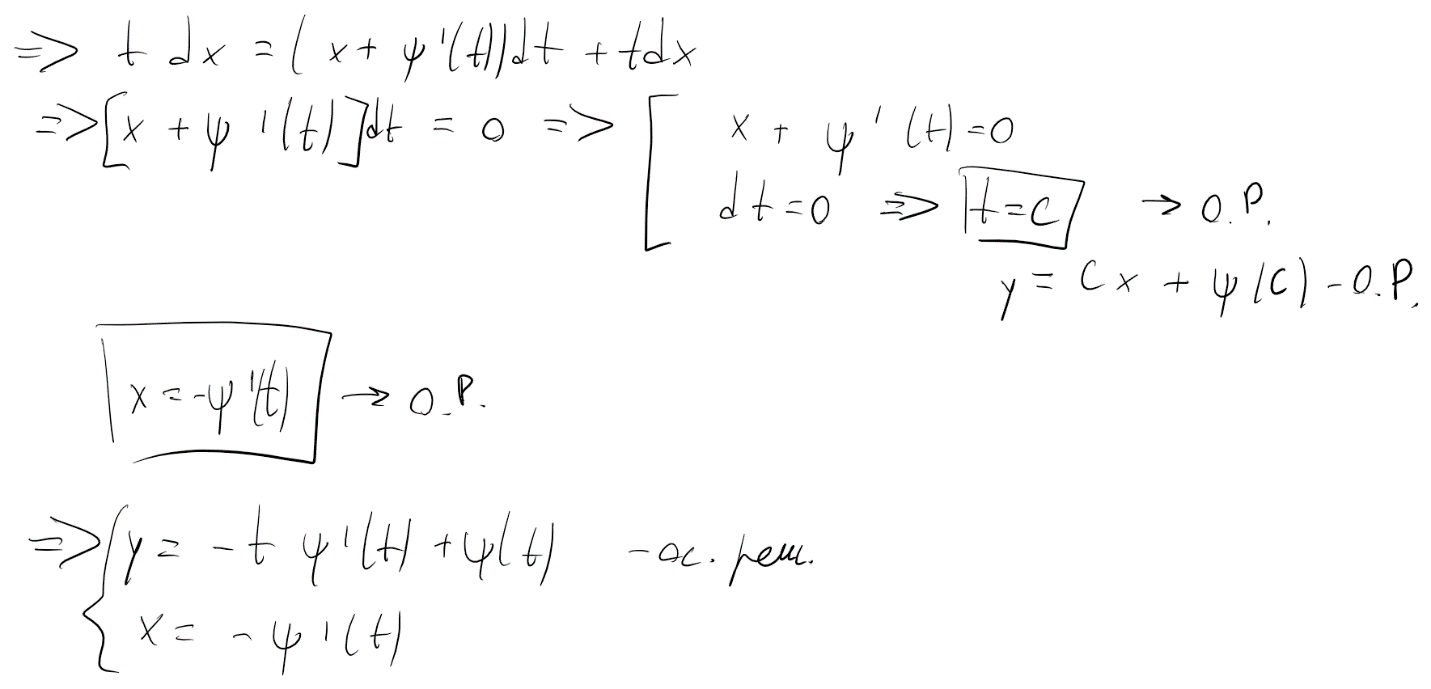 => t dx = (x + ψ'(t))dt + tdx
=> [x + ψ'(t)]dt = 0 => [ x + ψ'(t) = 0
dt = 0 => t = c → О.Р.
y = Cx + ψ(C) - О.Р.
x = -ψ'(t) → О.Р.
=> { y = -t ψ'(t) + ψ(t) - ос. реш.
x = -ψ'(t)